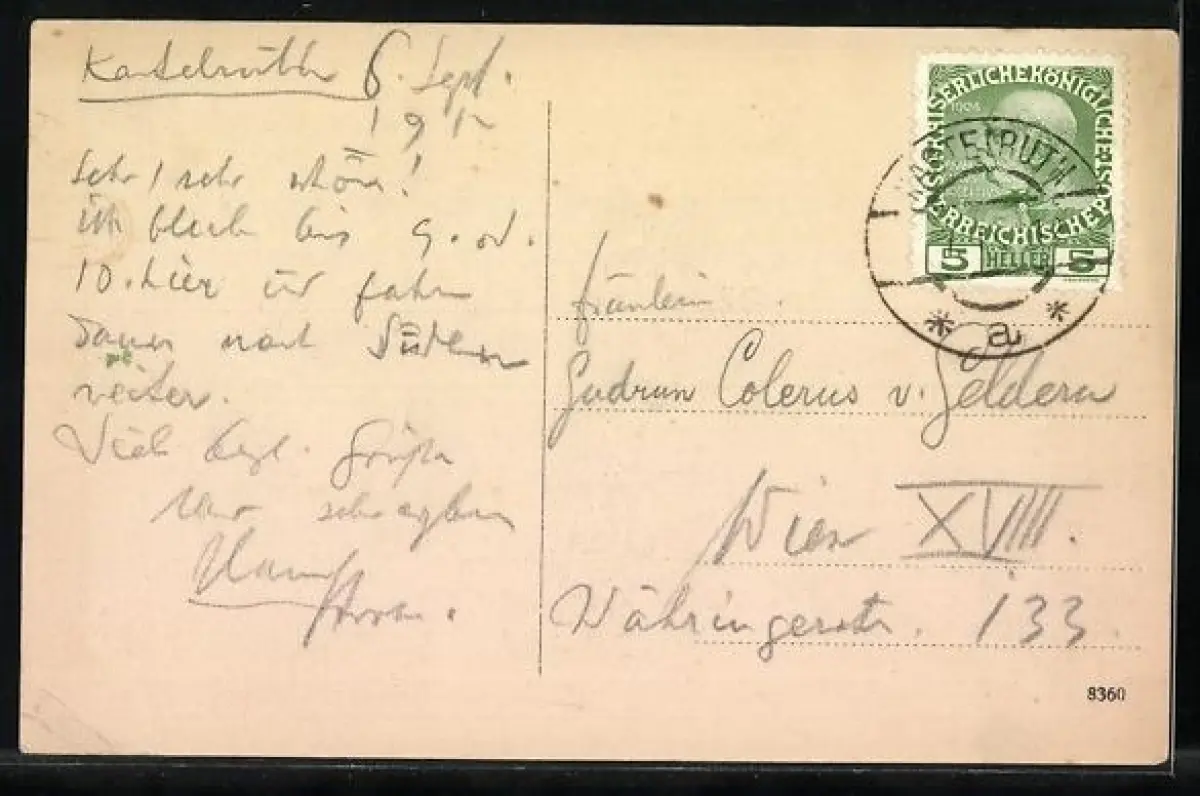 Kastelruth 6. Sept.
1912
Sehr, sehr schön!
ich bleib bis 9. od.
10. hier u fahre
dann nach Süden
weiter.
Viele herzl. Grüße
KAISERLICHE KÖNIGLICHE ÖSTERREICHISCHE POST
1908
5 HELLER 5
KASTELRUTH
* a *
Fräulein
Gudrun Colerus v. Geldern
Wien XVIII.
Währingerstr. 133.
8360